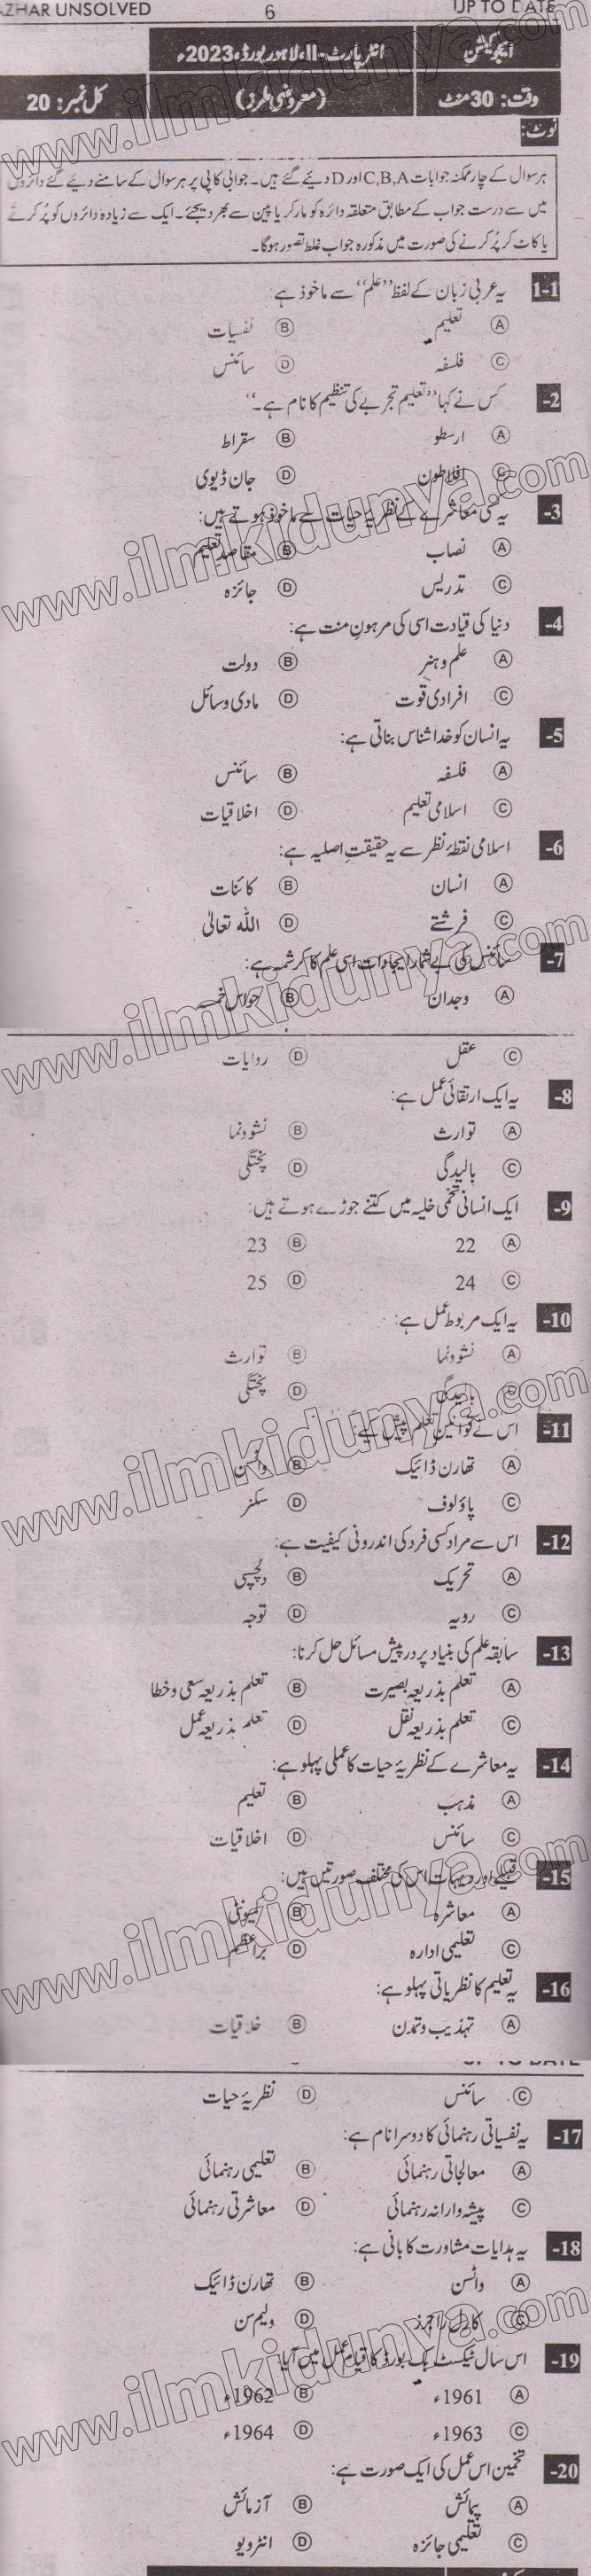 AZHAR UNSOLVED 6 UP TO DATE
ایجوکیشن انٹر پارٹ-II، لاہور بورڈ، 2023ء
وقت: 30 منٹ (معروضی طرز) کل نمبر: 20
نوٹ:
ہر سوال کے چار ممکنہ جوابات C,B,A اور D دیے گئے ہیں۔ جوابی کاپی پر ہر سوال کے سامنے دیے گئے دائروں
میں سے درست جواب کے مطابق متعلقہ دائرہ کو مارکر یا پین سے بھر دیجئے۔ ایک سے زیادہ دائروں کو پُر کرنے
یا کاٹ کر پُر کرنے کی صورت میں مذکورہ جواب غلط تصور ہوگا۔
1-1 یہ عربی زبان کے لفظ "علم" سے ماخوذ ہے:
Ⓐ تعلیم Ⓑ نفسیات
Ⓒ فلسفہ Ⓓ سائنس
-2 کس نے کہا "تعلیم تجربے کی تنظیم کا نام ہے۔"
Ⓐ ارسطو Ⓑ سقراط
Ⓒ افلاطون Ⓓ جان ڈیوی
-3 یہ کسی معاشرے کے نظریہ حیات سے ماخوذ ہوتے ہیں:
Ⓐ نصاب Ⓑ مقاصد تعلیم
Ⓒ تدریس Ⓓ جائزہ
www.ilmkidunya.com
-4 دنیا کی قیادت اسی کی مرہونِ منت ہے:
Ⓐ علم و ہنر Ⓑ دولت
Ⓒ افرادی قوت Ⓓ مادی وسائل
-5 یہ انسان کو خدا شناس بناتی ہے:
Ⓐ فلسفہ Ⓑ سائنس
Ⓒ اسلامی تعلیم Ⓓ اخلاقیات
-6 اسلامی نقطۂ نظر سے یہ حقیقتِ اصلیہ ہے:
Ⓐ انسان Ⓑ کائنات
Ⓒ فرشتے Ⓓ اللہ تعالیٰ
-7 سائنس کی بے شمار ایجادات اسی علم کا کرشمہ ہے:
Ⓐ وجدان Ⓑ حواس خمسہ
www.ilmkidunya.com
Ⓒ عقل Ⓓ روایات
-8 یہ ایک ارتقائی عمل ہے:
Ⓐ توارث Ⓑ نشوونما
Ⓒ بالیدگی Ⓓ پختگی
-9 ایک انسانی تخمی خلیہ میں کتنے جوڑے ہوتے ہیں:
Ⓐ 22 Ⓑ 23
Ⓒ 24 Ⓓ 25
-10 یہ ایک مربوط عمل ہے:
Ⓐ نشوونما Ⓑ توارث
Ⓒ بالیدگی Ⓓ پختگی
-11 اس نے قوانین تعلم پیش کیے:
Ⓐ تھارن ڈائیک Ⓑ واٹسن
Ⓒ پاؤلوف Ⓓ سکنر
www.ilmkidunya.com
-12 اس سے مراد کسی فرد کی اندرونی کیفیت ہے:
Ⓐ تحریک Ⓑ دلچسپی
Ⓒ رویہ Ⓓ توجہ
-13 سابقہ علم کی بنیاد پر درپیش مسائل حل کرنا:
Ⓐ تعلم بذریعہ بصیرت Ⓑ تعلم بذریعہ سعی و خطا
Ⓒ تعلم بذریعہ نقل Ⓓ تعلم بذریعہ عمل
-14 یہ معاشرے کے نظریۂ حیات کا عملی پہلو ہے:
Ⓐ مذہب Ⓑ تعلیم
Ⓒ سائنس Ⓓ اخلاقیات
-15 قبیلے اور دیہات اس کی مختلف صورتیں ہیں:
Ⓐ معاشرہ Ⓑ کمیونٹی
Ⓒ تعلیمی ادارہ Ⓓ براعظم
www.ilmkidunya.com
-16 یہ تعلیم کا نظریاتی پہلو ہے:
Ⓐ تہذیب و تمدن Ⓑ اخلاقیات
UP TO DATE
Ⓒ سائنس Ⓓ نظریۂ حیات
-17 یہ نفسیاتی رہنمائی کا دوسرا نام ہے:
Ⓐ معالجاتی رہنمائی Ⓑ تعلیمی رہنمائی
Ⓒ پیشہ وارانہ رہنمائی Ⓓ معاشرتی رہنمائی
-18 یہ ہدایات مشاورت کا بانی ہے:
Ⓐ واٹسن Ⓑ تھارن ڈائیک
Ⓒ کارل راجرز Ⓓ ولیم سن
-19 اس سال ٹیکسٹ بک بورڈ کا قیام عمل میں آیا:
Ⓐ 1961ء Ⓑ 1962ء
Ⓒ 1963ء Ⓓ 1964ء
www.ilmkidunya.com
-20 تخمین اس عمل کی ایک صورت ہے:
Ⓐ پیمائش Ⓑ آزمائش
Ⓒ تعلیمی جائزہ Ⓓ انٹرویو